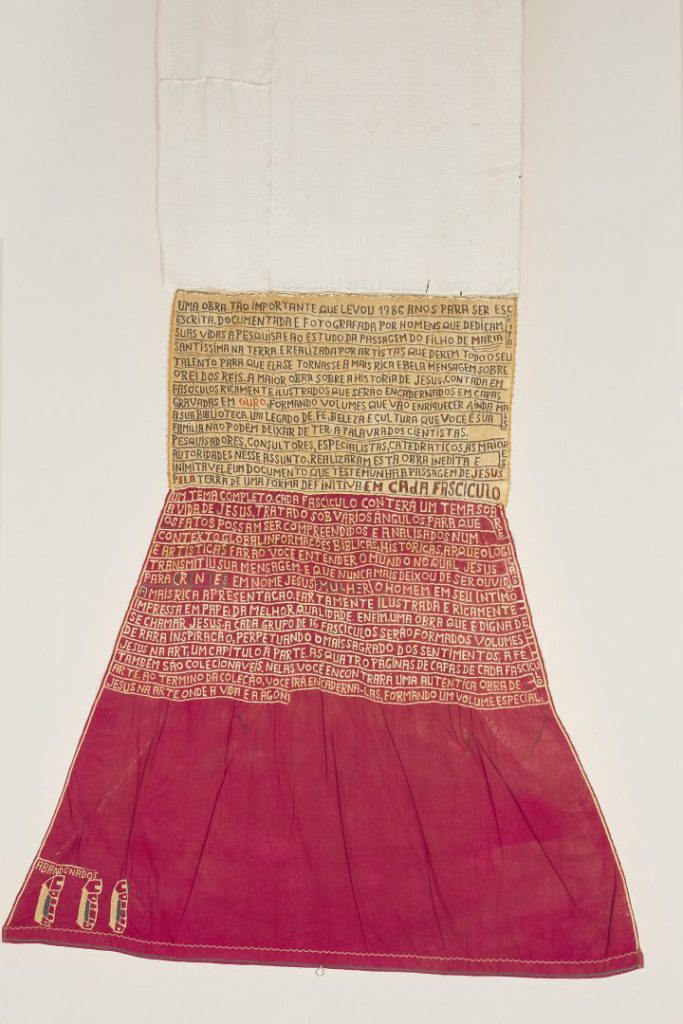 UMA OBRA TÃO IMPORTANTE QUE LEVOU 1986 ANOS PARA SER ESC
ESCRITA, DOCUMENTADA E FOTOGRAFADA POR HOMENS QUE DEDICAM
SUAS VIDAS A PESQUISA E AO ESTUDO DA PASSAGEM DO FILHO DE MARIA
SANTISSIMA NA TERRA. E REALIZADA POR ARTISTAS QUE DEREM TODO O SEU
TALENTO PARA QUE ELA SE TORNASSE A MAIS RICA E BELA MENSAGEM SOBRE
O REI DOS REIS. A MAIOR OBRA SOBRE A HISTORIA DE JESUS, CONTADA EM
FASÓCULOS RICAMENTE ILUSTRADOS QUE SERÃO ENCADERNADOS EM CAPAS
GRAVADAS EM OURO, FORMANDO VOLUMES QUE VÃO ENRIQUECER AINDA MA
A SUA BIBLIOTECA. UM LEGADO DE FÉ, BELEZA E CULTURA QUE VOCE E SUA
FAMILIA NÃO PODEM DEIXAR DE TER. A PALAVRA DOS CIENTISTAS.
PESQUISADORES, CONSULTORES, ESPECIALISTAS, CATEDRATICOS, AS MAIORE
AUTORIDADES NESSE ASSUNTO, REALIZARAM ESTA OBRA INEDITA E
INIMITAVEL E UM DOCUMENTO QUE TESTEMUNHA A PASSAGEM DE JESUS
PELA TERRA DE UMA FORMA DEFINITIVA EM CADA FASCICULO
UM TEMA COMPLETO. CADA FASCICULO CONTERA UM TEMA SOBRE
A VIDA DE JESUS, TRATADO SOB VARIOS ANGULOS, PARA QUE
OS FATOS POSSAM SER COMPREENDIDOS E ANALISADOS NUM
CONTEXTO GLOBAL INFORMAÇÕES BIBLICAS, HISTORICAS, ARQUEOLOGICAS
E ARTISTICAS FARÃO VOCE ENTENDER O MUNDO NO QUAL JESUS
TRANSMITIU SUA MENSAGEM, E QUE NUNCA MAIS DEIXOU DE SER OUVIDA
PARA CRENTES EM NOME JESUS MULHER O HOMEM EM SEU INTIMO
A MAIS RICA APRESENTAÇÃO. FARTAMENTE ILUSTRADA E RICAMENTE
IMPRESSA EM PAPEL DA MELHOR QUALIDADE. ENFIM, UMA OBRA QUE É DIGNA DE
SE CHAMAR JESUS. E CADA GRUPO DE 16 FASCICULOS SERÃO FORMADOS VOLUMES
DE RARA INSPIRAÇÃO, PERPETUANDO O MAIS SAGRADO DOS SENTIMENTOS, A FÉ
JESUS NA ART, UM CAPITULO A PARTE AS QUATRO PAGINAS DE CAPAS DE CADA FASCICUS
TAMBEM SÃO COLECIONAVEIS, NELAS VOCE ENCONTRARA UMA AUTENTICA OBRA DE
ARTE. AO TERMINO DA COLEÇÃO, VOCE IRA ENCADERNA-LAS, FORMANDO UM VOLUME ESPECIAL
JESUS NA ARTE, ONDE A VIDA E A AGON
ABANDONADOS